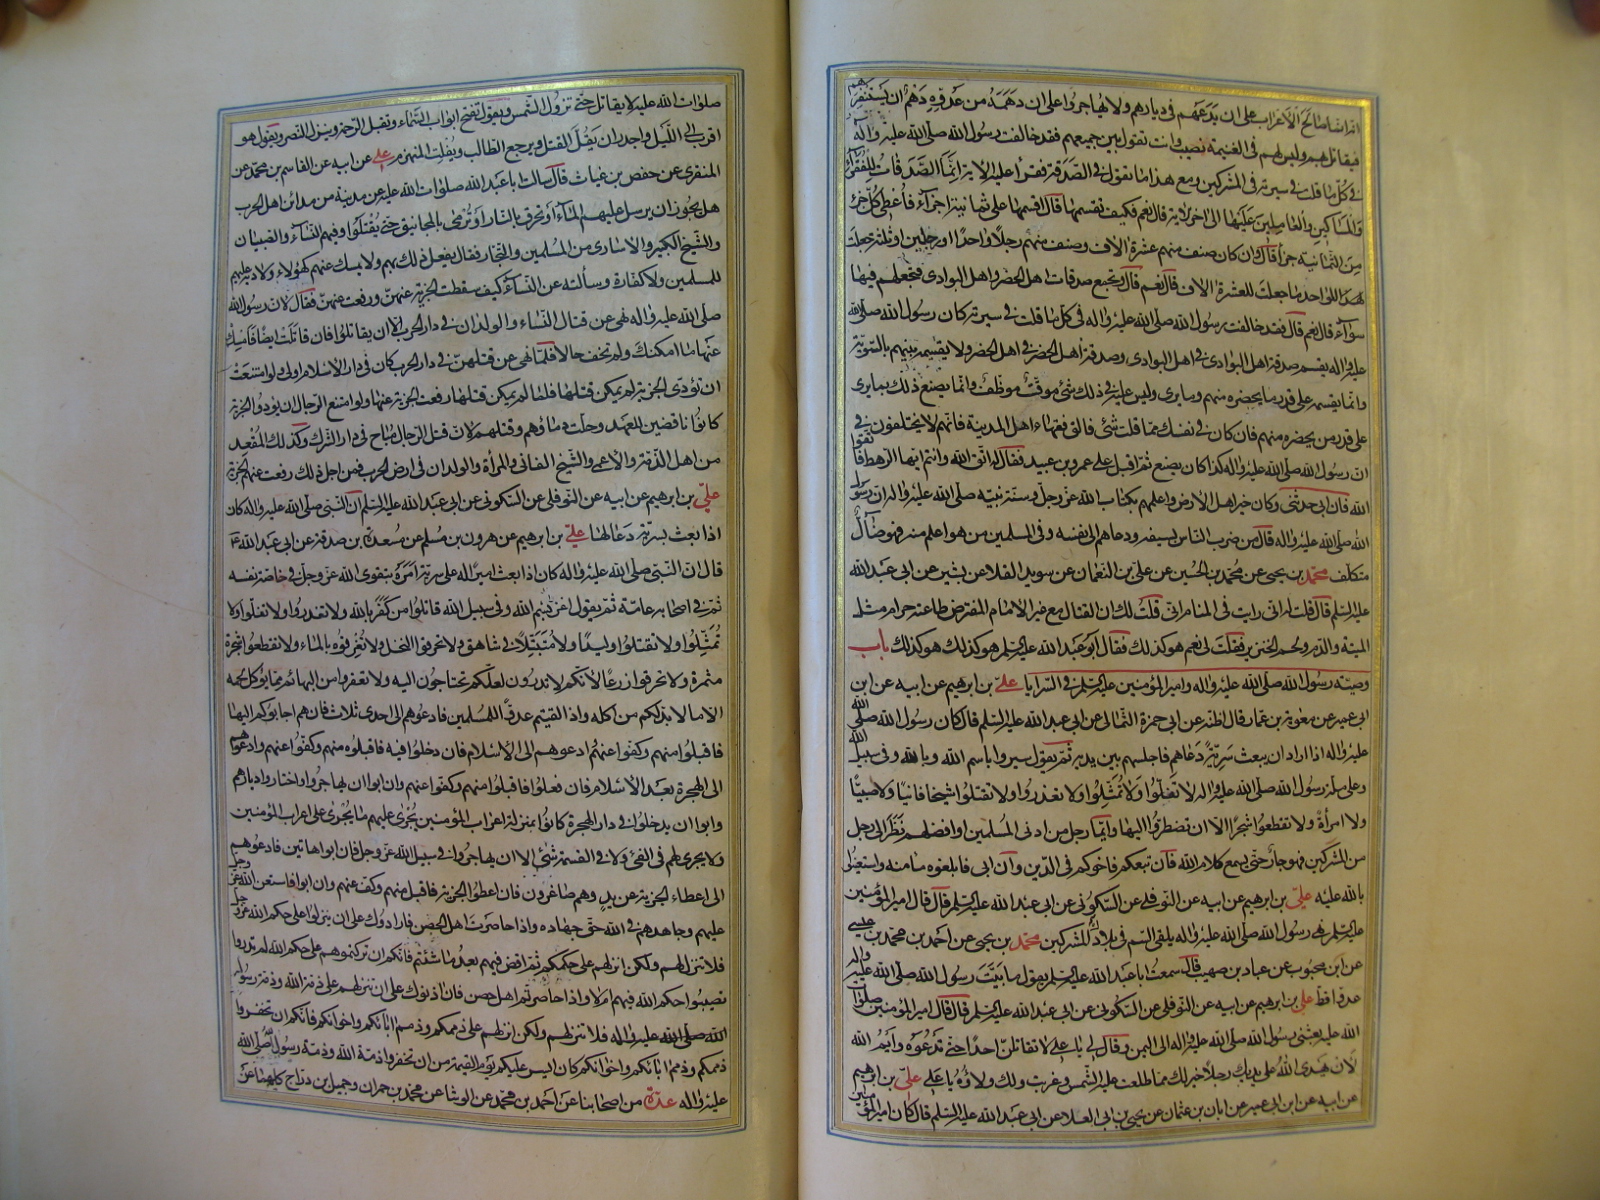 انه انما صالح الاعراب على ان يدعهم في ديارهم ولا يهاجروا على ان دهمه من عدوه دهم ان يستنفرهم
فيقاتل بهم وليس لهم في الغنيمة نصيب وانت تقول بين جميعهم فقد خالفت رسول الله صلى الله عليه واله
في كل ما قلت في سيرته في المشركين ومع هذا ما تقول في الصدقة فقرأ عليه الاية انما الصدقات للفقراء
والمساكين والعاملين عليها الى اخر الاية قال نعم فكيف تقسمها قال اقسمها على ثمانية اجزاء فاعطي كل جزء
من الثمانية جزأ قال وان كان صنف منهم عشرة الاف وصنف منهم رجلا واحدا او رجلين او ثلثة جعلت
لهذا الواحد ما جعلت للعشرة الاف قال نعم قال وتجمع صدقات اهل الحضر واهل البوادى فتجعلهم فيها
سواء قال نعم قال فقد خالفت رسول الله صلى الله عليه واله في كل ما قلت في سيرته كان رسول الله صلى الله
عليه واله يقسم صدقة اهل البوادى في اهل البوادى وصدقة اهل الحضر في اهل الحضر ولا يقسمه بينهم بالسوية
وانما يقسمه على قدر ما يحضره منهم وما يرى وليس عليه في ذلك شئ موقت موظف وانما يصنع ذلك بما يرى
على قدر من يحضره منهم فان كان في نفسك مما قلت شئ فالق فقهاء اهل المدينة فانهم لا يختلفون في
ان رسول الله صلى الله عليه واله كذا كان يصنع ثم اقبل على عمرو بن عبيد فقال له اتق الله وانتم ايها الرهط فاتقوا
الله فان ابي حدثني وكان خير اهل الارض واعلمهم بكتاب الله عز وجل وسنة نبيه صلى الله عليه واله ان رسول
الله صلى الله عليه واله قال من ضرب الناس بسيفه ودعاهم الى نفسه وفي المسلمين من هو اعلم منه فهو ضال
متكلف محمد بن يحيى عن محمد بن الحسين عن علي بن النعمان عن سويد القلا عن بشير عن ابي عبد الله
عليه السلم قال قلت له انى رايت في المنام انى قلت لك ان القتال مع غير الامام المفترض طاعته حرام مثل
الميتة والدم ولحم الخنزير فقلت لي نعم هو كذلك فقال ابو عبد الله عليه السلم هو كذلك هو كذلك باب
وصية رسول الله صلى الله عليه واله وامير المؤمنين عليه السلم في السرايا علي بن ابرهيم عن ابيه عن ابن
ابي عمير عن معوية بن عمار قال اظنه عن ابي حمزة الثمالى عن ابي عبد الله عليه السلم قال كان رسول الله صلى الله
عليه واله اذا اراد ان يبعث سرية دعاهم فاجلسهم بين يديه ثم يقول سيروا باسم الله وبالله وفي سبيل الله
وعلى ملة رسول الله صلى الله عليه واله لا تغلوا ولا تمثلوا ولا تغدروا ولا تقتلوا شيخا فانيا ولا صبيا
ولا امرأة ولا تقطعوا شجرا الا ان تضطروا اليها وايما رجل من ادنى المسلمين او افضلهم نظر الى رجل
من المشركين فهو جار حتى يسمع كلام الله فان تبعكم فاخوكم في الدين وان ابى فابلغوه مامنه واستعينوا
بالله عليه علي بن ابرهيم عن ابيه عن النوفلي عن السكوني عن ابي عبد الله عليه السلم قال قال امير المؤمنين
عليه السلم نهى رسول الله صلى الله عليه واله يلقى السم في بلاد المشركين محمد بن يحيى عن احمد بن محمد بن عيسى
عن ابن محبوب عن عباد بن صهيب قال سمعت ابا عبد الله عليه السلم يقول ما بيت رسول الله صلى الله عليه واله
عدوا قط علي بن ابرهيم عن ابيه عن النوفلي عن السكوني عن ابي عبد الله عليه السلم قال قال امير المؤمنين صلوات
الله عليه بعثني رسول الله صلى الله عليه واله الى اليمن وقال لي يا علي لا تقاتلن احدا حتى تدعوه وايم الله
لان يهدى الله على يديك رجلا خير لك مما طلعت عليه الشمس وغربت ولك ولاؤه يا علي علي بن ابرهيم
عن ابيه عن ابن ابي عمير عن ابان بن عثمان عن يحيى بن ابي العلا عن ابي عبد الله عليه السلم قال كان امير المؤمنين
صلوات الله عليه لا يقاتل حتى تزول الشمس ويقول تفتح ابواب السماء وتقبل الرحمة وينزل النصر ويقول هو
اقرب الى الليل واجدر ان يقل القتل ويرجع الطالب ويفلت المنهزم علي عن ابيه عن القاسم بن محمد عن
المنقرى عن حفص بن غياث قال سالت ابا عبد الله صلوات الله عليه عن مدينة من مدائن اهل الحرب
هل يجوز ان يرسل عليهم الماء او تحرق بالنار او ترمى بالمجانيق حتى يقتلوا وفيهم النساء والصبيان
والشيخ الكبير والاسارى من المسلمين والتجار فقال يفعل ذلك بهم ولا يمسك عنهم لهؤلاء ولا دية عليهم
للمسلمين ولا كفارة وسألته عن النساء كيف سقطت الجزية عنهن ورفعت عنهن فقال لان رسول الله
صلى الله عليه واله نهى عن قتال النساء والولدان في دار الحرب الا ان يقاتلوا فان قاتلت ايضا فامسك
عنها ما امكنك ولم تخف حالا فلما نهى عن قتلهن في دار الحرب كان في دار الاسلام اولى ولو امتنعت
ان تؤدى الجزية لم يمكن قتلها فلما لم يمكن قتلها رفعت الجزية عنها ولو امتنع الرجال ان يؤدوا الجزية
كانوا ناقضين للعهد وحلت دماؤهم وقتلهم لان قتل الرجال مباح في دار الشرك وكذلك المقعد
من اهل الذمة والاعمى والشيخ الفاني والمرأة والولدان في ارض الحرب فمن اجل ذلك رفعت عنهم الجزية
علي بن ابرهيم عن ابيه عن النوفلى عن السكونى عن ابي عبد الله عليه السلم ان النبى صلى الله عليه واله كان
اذا بعث بسرية دعا لها علي بن ابرهيم عن هرون بن مسلم عن مسعدة بن صدقة عن ابي عبد الله ع
قال ان النبى صلى الله عليه واله كان اذا بعث اميرا له على سرية امره بتقوى الله عز وجل في خاصة نفسه
ثم في اصحابه عامة ثم يقول اغز بسم الله وفي سبيل الله قاتلوا من كفر بالله ولا تغدروا ولا تغلوا ولا
تمثلوا ولا تقتلوا وليدا ولا متبتلا في شاهق ولا تحرقوا النخل ولا تغرقوه بالماء ولا تقطعوا شجرة
مثمرة ولا تحرقوا زرعا لانكم لا تدرون لعلكم تحتاجون اليه ولا تعقروا من البهائم مما يؤكل لحمه
الا ما لا بد لكم من اكله واذا لقيتم عدوا للمسلمين فادعوهم الى احدى ثلاث فان هم اجابوكم اليها
فاقبلوا منهم وكفوا عنهم ادعوهم الى الاسلام فان دخلوا فيه فاقبلوه منهم وكفوا عنهم وادعوهم
الى الهجرة بعد الاسلام فان فعلوا فاقبلوا منهم وكفوا عنهم وان ابوا ان يهاجروا واختاروا ديارهم
وابوا ان يدخلوا في دار الهجرة كانوا بمنزلة اعراب المؤمنين يجرى عليهم ما يجرى على اعراب المؤمنين
ولا يجرى لهم في الفئ ولا في القسمة شئ الا ان يهاجروا في سبيل الله عز وجل فان ابوا هاتين فادعوهم
الى اعطاء الجزية عن يد وهم صاغرون فان اعطوا الجزية فاقبل منهم وكف عنهم وان ابوا فاستعن الله عز وجل
عليهم وجاهدهم في الله حق جهاده واذا حاصرت اهل الحصن فارادوك على ان ينزلوا على حكم الله عز وجل
فلا تنزلهم ولكن انزلهم على حكمكم ثم اقض فيهم بعد ما شئتم فانكم ان تركتموهم على حكم الله لم تدروا
تصيبوا حكم الله فيهم ام لا واذا حاصرتم اهل حصن فان اذنوك على ان تنزلهم على ذمة الله وذمة رسول
الله صلى الله عليه واله فلا تنزلهم ولكن انزلهم على ذممكم وذمم ابائكم واخوانكم فانكم ان تخفروا
ذممكم وذمم ابائكم واخوانكم كان ايسر عليكم يوم القيمة من ان تخفروا ذمة الله وذمة رسول الله صلى الله
عليه واله عدة من اصحابنا عن احمد بن محمد عن الوشا عن محمد بن حمران وجميل بن دراج كليهما عن